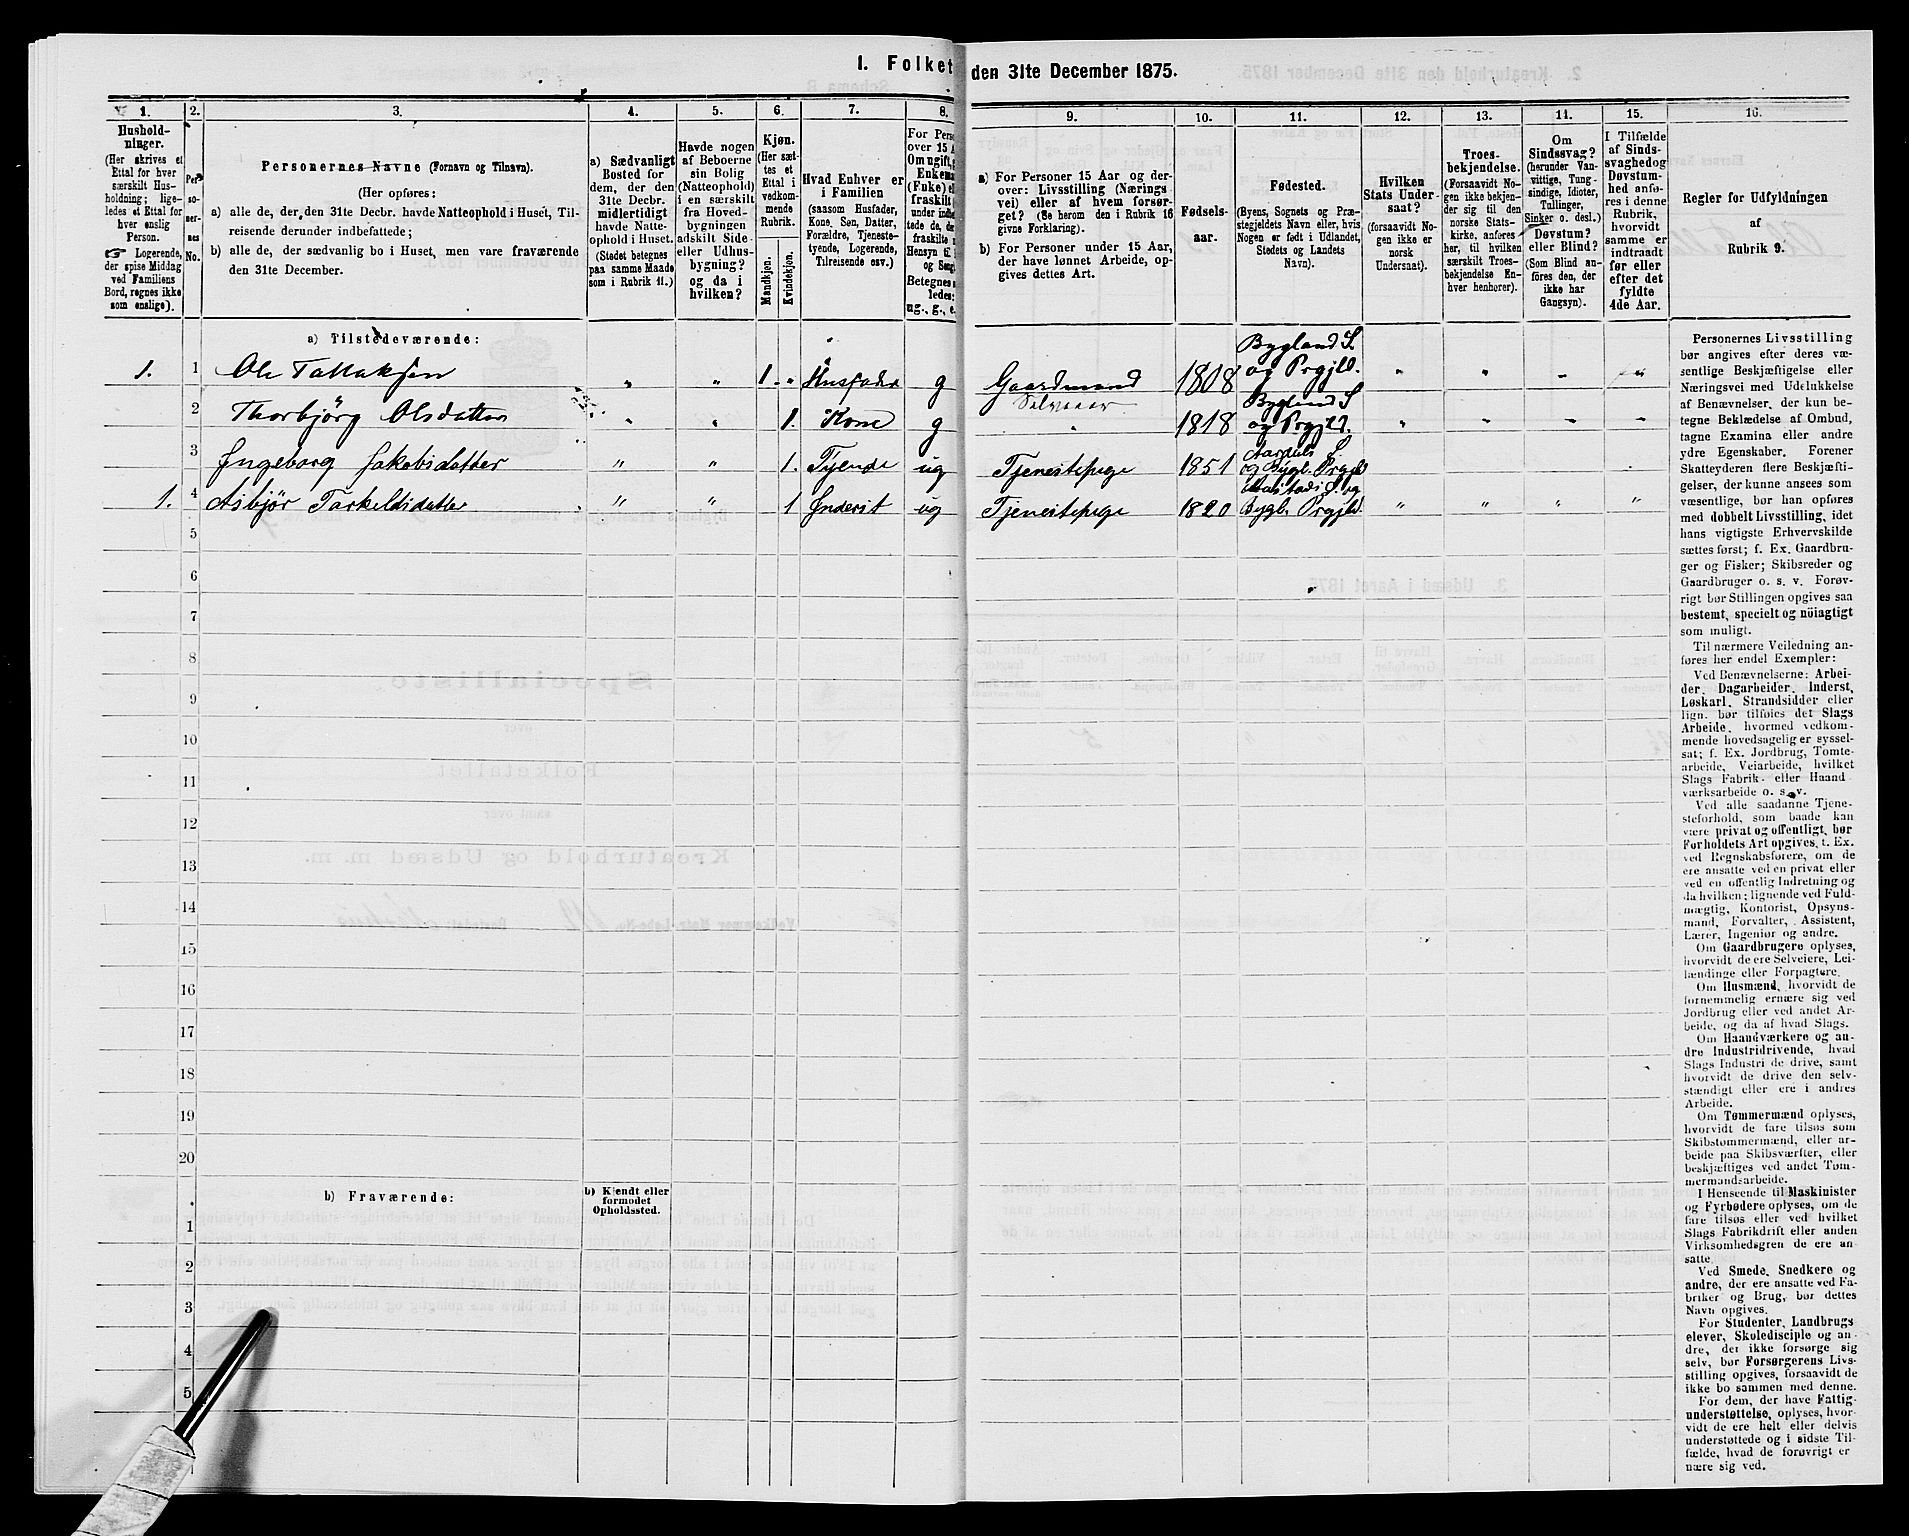 1. Folket
den 31te December 1875.
1. 2. 3. 4. 5. 6. 7. 8.
9. 10. 11. 12. 13. 14. 15. 16.
Hushold-
ninger.
(Her skrives et
Ettal for hver
særskilt Hus-
holdning; lige-
ledes et Ettal for
hver enslig
Person.
☞ Logerende,
der spise Middag
ved Familiens
Bord, regnes ikke
som enslige).
Per-
so-
ner-
nes
No.
Personernes Navne (Fornavn og Tilnavn).
(Her opføres:
a) alle de, der den 31te Decbr. havde Natteophold i Huset, Til-
reisende derunder indbefattede;
b) alle de, der sædvanlig bo i Huset, men vare fraværende
den 31te December.
a) Sædvanligt
Bosted for
dem, der den
31te Decbr.
midlertidigt
havde Natte-
ophold i Huset.
(Stedet betegnes
paa samme Maade
som i Rubrik 11.)
Havde nogen
af Beboerne
sin Bolig
(Natteophold)
i en særskilt
fra Hoved-
bygningen
adskilt Side-
eller Udhus-
bygning?
og da i
hvilken?
Kjøn.
(Her sæt-
tes et
Ettal i
vedkom-
mende
Rubrik.
Mandkjøn.
Kvindekjøn.
Hvad Enhver er
i Familien
(saasom Husfader,
Kone, Søn, Datter,
Forældre, Tjeneste-
tyende, Logerende,
Tilreisende osv.)
For Pers
over 15 A
Om ugift, g
Enkem
(Enke) el
fraskilt
under indb
tede de, de
fraskilte
Hensyn til
og Seng
Betegnes
ledes:
ug., g., e.
a) For Personer 15 Aar og der-
over: Livsstilling (Nærings-
vei) eller af hvem forsør-
get? (Se herom den i Rubrik 16
givne Forklaring).
b) For Personer under 15 Aar,
der have lønnet Arbeide, op-
gives dettes Art.
Fødsels-
aar.
Fødested.
(Byens, Sognets og Præ-
stegjeldets Navn eller, hvis
Nogen er født i Udlandet,
Stedets og Landets
Navn).
Hvilken
Stats Under-
saat?
(forsaavidt No-
gen ikke er
norsk
Undersaat).
Troes-
bekjendelse.
(Forsaavidt No-
gen ikke bekjen-
der sig til den
norske Stats-
kirke, anføres
her, til hvilken
særskilt Troes-
bekjendelse En-
hver henhører).
Om
Sindssvag?
(herunder Van-
vittige, Tung-
sindige, Idioter,
Tullinger,
Sinker o. desl.)
Døvstum?
eller Blind?
(Som Blind an-
føres den, der
ikke har
Gangsyn).
I Tilfælde
af Sinds-
svaghedog
Døvstum-
hed anfø-
res i denne
Rubrik,
hvorvidt
samme er
indtraadt
før eller
efter det
fyldte
4de Aar.
Regler for Udfyldningen
af
Rubrik 9.
a) Tilstedeværende:
1. 1 Ole Tallaksen " " 1 " Husfader g Gaardmand Selveier 1808 Bygland S. og Prgjld. " " " "
2 Thorbjörg Olsdatter " " 1. Kone g " 1818 Bygland S og Prgjld. " " " "
3 Ingeborg Jakobsdatter " " 1. Tyende ug Tjenestepige 1851 Aardals S. og Bygl. Prgjld
1. 4 Asbjör Tarkeldsdatter " " 1 Inderst ug Tjenestepige 1820 S. og Bygl. Prgjld. " " " "
5
6
7
8
9
10
11
12
13
14
15
16
17
18
19
20
b) Fraværende:
b) Kjendt eller
formodet
Opholdssted.
1
2
3
4
5
Personernes Livsstilling
bør angives efter deres væ-
sentlige Beskjæftigelse eller
Næringsvei med Udelukkelse
af Benævnelser, der kun be-
tegne Beklædelse af Ombud,
tagne Examina eller andre
ydre Egenskaber. Forener
Skatteyderen flere Beskjæfti-
gelser, der kunne ansees som
væsentlige, bør han opføres
med dobbelt Livsstilling, idet
hans vigtigste Erhvervskilde
sættes først; f. Ex. Gaardbru-
ger og Fisker; Skibsreder og
Gaardbruger o. s. v. Forøv-
rigt bør Stillingen opgives saa
bestemt, specielt og nöiagtigt
som muligt.
Til nærmere Veiledning an-
føres her endel Exempler:
Ved Benævnelserne: Arbei-
der, Dagarbeider, Inderst,
Løskarl, Strandsidder eller
lign. bør tilføies det Slags
Arbeide, hvormed vedkom-
mende hovedsagelig er syssel-
sat; f. Ex. Jordbrug, Tomte-
arbeide, Veiarbeide, hvilket
Slags Fabrik- eller Haand-
værksarbeide o. s. v.
Ved alle saadanne Tjene-
steforhold, som baade kan
være privat og offentligt, bør
Forholdets Art opgives, t. Ex.
ved Regnskabsførere, om de
ere ansatte ved en privat eller
ved en offentlig Indretning og
da hvilken; lignende ved Fuld-
mægtig, Kontorist, Opsyns-
mand, Forvalter, Assistent,
Lærer, Ingeniør og andre.
Om Gaardbrugere oplyses,
hvorvidt de ere Selveiere, Lei-
lændinge eller Forpagtere.
Om Husmænd, hvorvidt de
fornemmelig ernære sig ved
Jordbrug eller ved andet Ar-
beide, og da af hvad Slags.
Om Haandværkere og an-
dre Industridrivende, hvad
Slags Industri de drive, samt
hvorvidt de drive den selv-
stændigt eller ere i andres
Arbeide.
Om Tømmermænd oplyses,
hvorvidt de fare tilsøs som
Skibstømmermænd, eller ar-
beide paa Skibsværfter, eller
beskjæftiges ved andet Tøm-
mermandsarbeide.
I Henseende til Maskinister
og Fyrbødere oplyses, om de
fare tilsøs eller ved hvilket
Slags Fabrikdrift eller anden
Virksomhedsgren de ere an-
satte.
Ved Smede, Snedkere og
andre, der ere ansatte ved Fa-
briker og Brug, bør dettes
Navn opgives.
For Studenter, Landbrugs-
elever, Skoledisciple og an-
dre, der ikke forsørge sig
selv, bør Forsørgerens Livs-
stilling opgives, forsaavidt de
ikke bo sammen med denne.
For dem, der have Fattig-
understøttelse, oplyses, hvor-
vidt de ere helt eller delvis
understøttede og i sidste Til-
fælde, hvad de forøvrigt er-
nære sig ved.